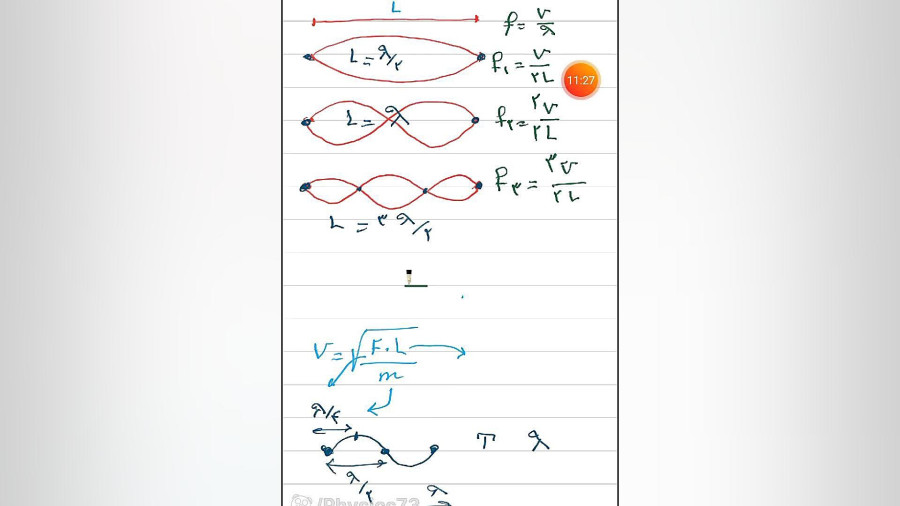 L
f = v/λ
L = λ/۲
f۱ = v/۲L
11:27
L = λ
f۲ = ۲v/۲L
f۳ = ۳v/۲L
L = ۳λ/۲
V = √F.L/m
λ/۴
T λ
λ/۲
λ
/Physics73